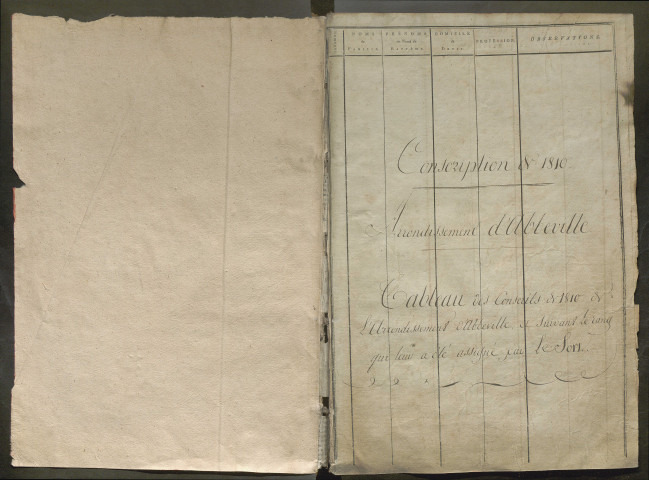 NOMS de FAMILLE
PRÉNOMS ou Noms de BAPTÊME
DOMICILE de DROIT
PROFESSION
OBSERVATIONS
Conscription de 1810
Arrondissement d'Abbeville
Tableau des Conscrits de 1810 de
L'Arrondissement d'Abbeville, et suivant le rang
qui leur a été assigné par le Sort.